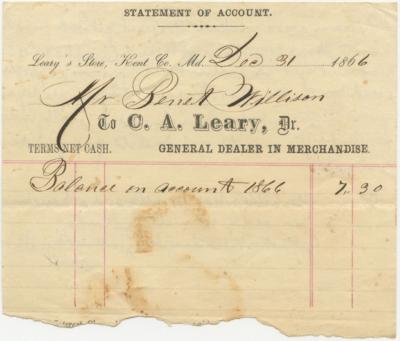 STATEMENT OF ACCOUNT.
Leary's Store, Kent Co. Md. Dec 31 1866
Mr Benet Willison
To C. A. Leary, Dr.
TERMS NET CASH. GENERAL DEALER IN MERCHANDISE.
Balance on account 1866 7.30